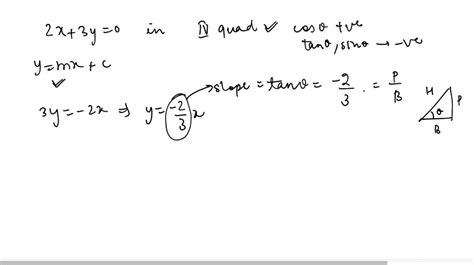 2x+3y=0 in IV quad ✓ cosθ +ve
tanθ, sinθ → -ve
y=mx+c
✓
3y=-2x ⇒ y=-2/3 x → slope = tanθ = -2/3 . = P/B
H P
θ
B